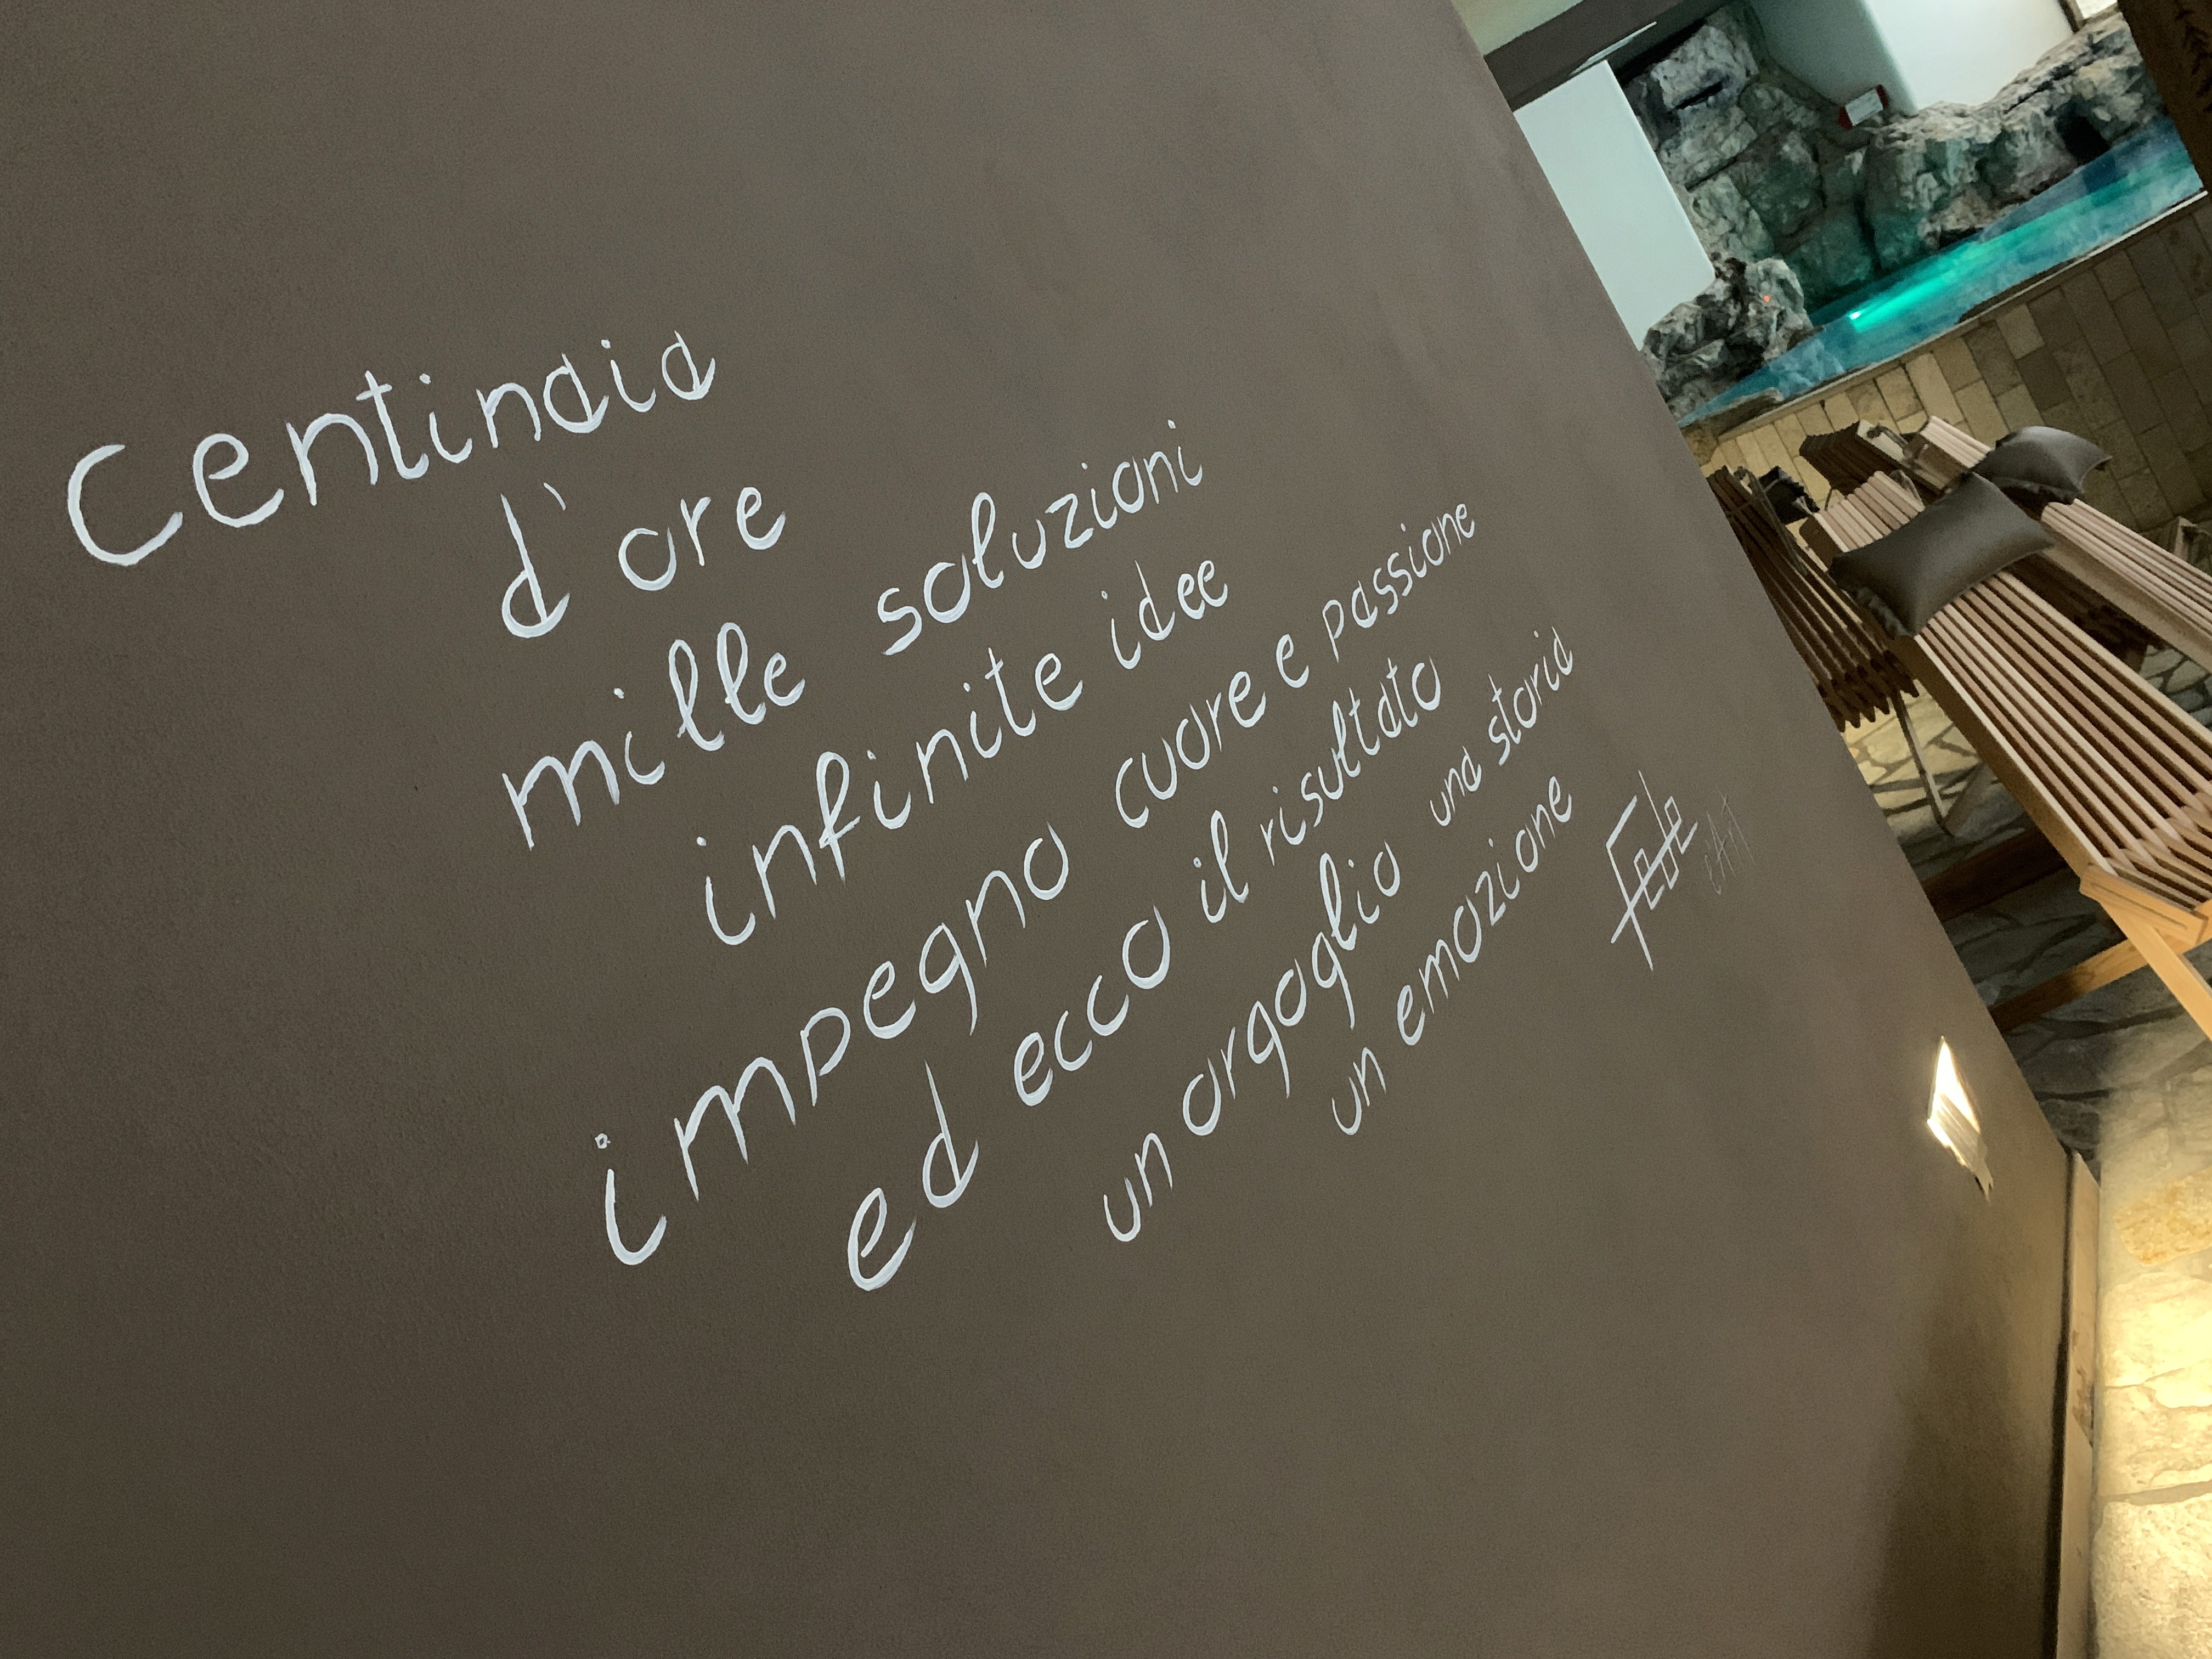 Centinaia
d'ore
mille soluzioni
infinite idee
impegno cuore e passione
ed ecco il risultato
un orgoglio una storia
un emozione